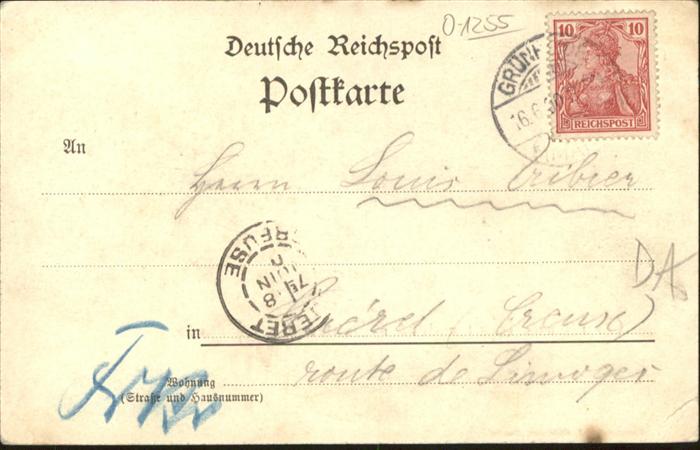 0-1255
Deutsche Reichspost
Postkarte
10 10
REICHSPOST
GRÜN
16.6.
An
Herrn Louis
CREUSE
JUIN
8
DA
in Guéret, Creuse
route de Limoges
Wohnung
(Straße und Hausnummer)